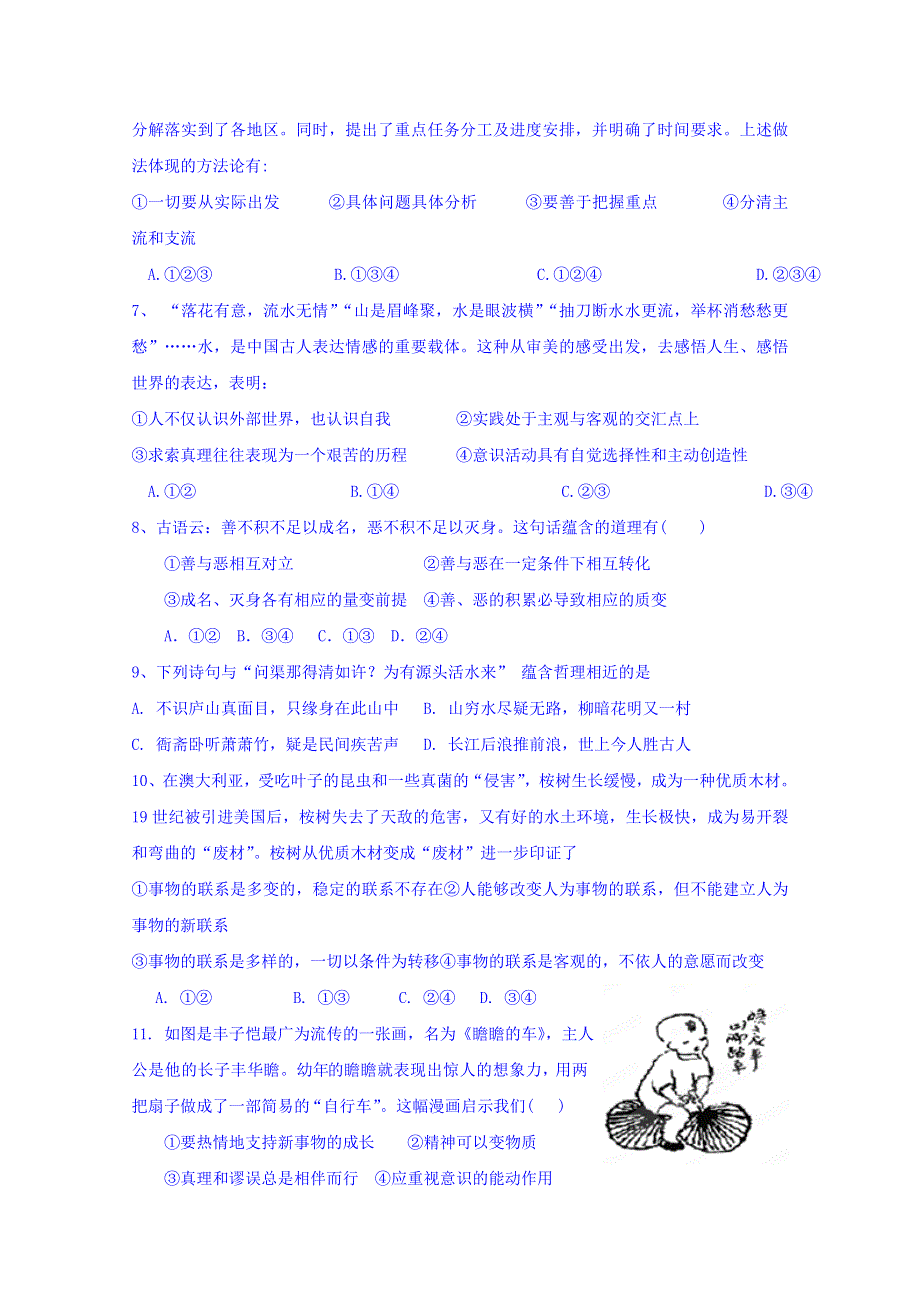 分解落实到了各地区。同时，提出了重点任务分工及进度安排，并明确了时间要求。上述做
法体现的方法论有:
①一切要从实际出发 ②具体问题具体分析 ③要善于把握重点 ④分清主
流和支流
A.①②③ B.①③④ C.①②④ D.②③④
7、 “落花有意，流水无情”“山是眉峰聚，水是眼波横”“抽刀断水水更流，举杯消愁愁更
愁”……水，是中国古人表达情感的重要载体。这种从审美的感受出发，去感悟人生、感悟
世界的表达，表明：
①人不仅认识外部世界，也认识自我 ②实践处于主观与客观的交汇点上
③求索真理往往表现为一个艰苦的历程 ④意识活动具有自觉选择性和主动创造性
A.①② B.①④ C.②③ D.③④
8、古语云：善不积不足以成名，恶不积不足以灭身。这句话蕴含的道理有( )
①善与恶相互对立 ②善与恶在一定条件下相互转化
③成名、灭身各有相应的量变前提 ④善、恶的积累必导致相应的质变
A．①② B．③④ C．①③ D．②④
9、下列诗句与“问渠那得清如许？为有源头活水来” 蕴含哲理相近的是
A. 不识庐山真面目，只缘身在此山中 B. 山穷水尽疑无路，柳暗花明又一村
C. 衙斋卧听萧萧竹，疑是民间疾苦声 D. 长江后浪推前浪，世上今人胜古人
10、在澳大利亚，受吃叶子的昆虫和一些真菌的“侵害”，桉树生长缓慢，成为一种优质木材。
19 世纪被引进美国后，桉树失去了天敌的危害，又有好的水土环境，生长极快，成为易开裂
和弯曲的“废材”。桉树从优质木材变成“废材”进一步印证了
①事物的联系是多变的，稳定的联系不存在②人能够改变人为事物的联系，但不能建立人为
事物的新联系
③事物的联系是多样的，一切以条件为转移④事物的联系是客观的，不依人的意愿而改变
A. ①② B. ①③ C. ②④ D. ③④
11. 如图是丰子恺最广为流传的一张画，名为《瞻瞻的车》，主人
公是他的长子丰华瞻。幼年的瞻瞻就表现出惊人的想象力，用两
把扇子做成了一部简易的“自行车”。这幅漫画启示我们( )
①要热情地支持新事物的成长 ②精神可以变物质
③真理和谬误总是相伴而行 ④应重视意识的能动作用